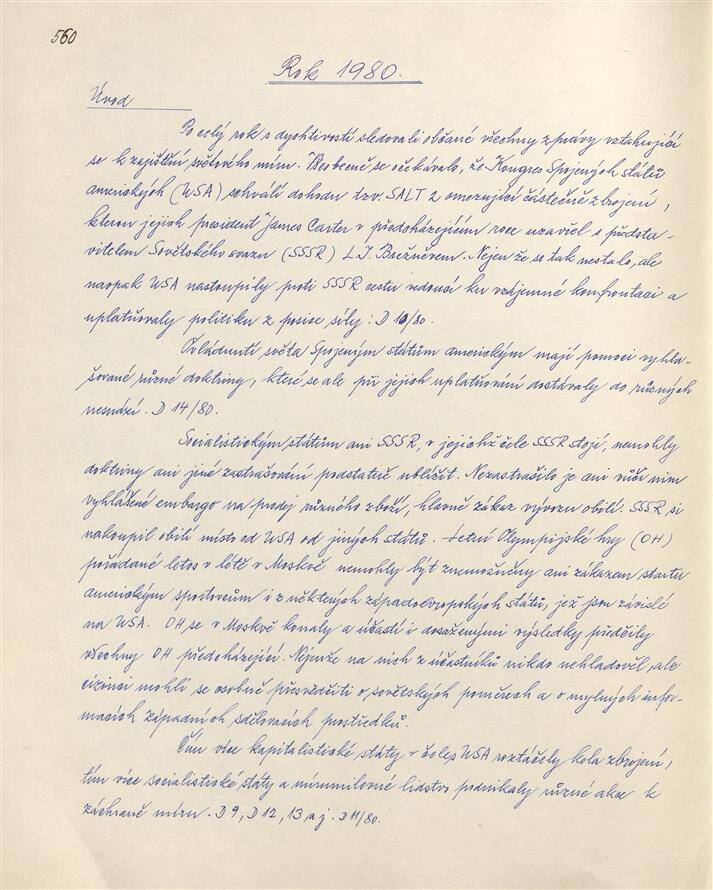 560
Rok 1980.
Úvod
Po celý rok s dychtivostí sledovali občané všechny zprávy vztahující
se k zajištění světového míru. Všeobecně se očekávalo, že Kongres Spojených států
amerických (USA) schválí dohodu tzv. SALT 2 omezující částečně zbrojení,
kterou jejich president James Carter v předcházejícím roce uzavřel s předsta-
vitelem Sovětského svazu (SSSR) L.I. Brežněvem. Nejen že se tak nestalo, ale
naopak USA nastoupily proti SSSR cestu vedoucí ku vzájemné konfrontaci a
uplatňovaly politiku z posice síly. D 10/80.
Ovládnutí světa Spojeným státům americkým mají pomoci vyhla-
šované různé doktriny, které se ale při jejich uplatňování dostávaly do různých
nesnází. D 14/80.
Socialistickým státům ani SSSR, v jejichž čele SSSR stojí, nemohly
doktriny ani jiné zastrašování podstatně ublížit. Nezastrašilo je ani vůči nim
vyhlášené embargo na prodej různého zboží, hlavně zákaz vývozu obilí. SSSR si
nakoupil obilí místo od USA od jiných států. Letní Olympijské hry (OH)
pořádané letos v létě v Moskvě nemohly být znemožněny ani zákazem startu
americkým sportovcům i z některých západoevropských států, jež jsou závislé
na USA. OH se v Moskvě konaly a účastí i dosaženými výsledky předčily
všechny OH předcházející. Nejenže na nich z účastníků nikdo nehladověl, ale
cizinci mohli se osobně přesvědčiti o sovětských poměrech a o mylných infor-
macích západních sdělovacích prostředků.
Čím více kapitalistické státy v čele s USA roztáčely kola zbrojení,
tím více socialistické státy a mírumilovné lidstvo podnikaly různé akce k
záchraně míru. D 9, D 12, 13 a j. D 11/80.